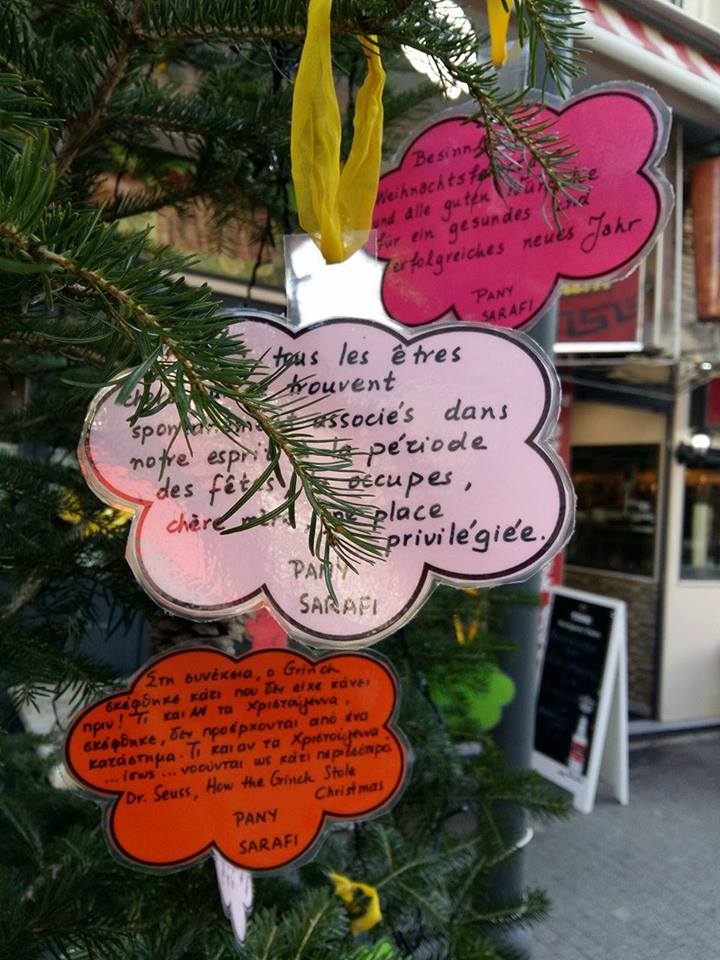 Besinn
Weihnachtsf
und alle guten
für ein gesundes und
erfolgreiches neues Jahr
PANY
SARAFI
tous les êtres
trouvent
associés dans
notre esprit la période
des fêtes occupes,
chère place
privilégiée.
PANY
SARAFI
Στη συνέχεια, ο Grinch
σκέφθηκε κάτι που δεν είχε κάνει
πριν! Τι και ΑΝ τα Χριστούγεννα,
σκέφθηκε, δεν προέρχονται από ένα
κατάστημα. Τι και αν τα Χριστούγεννα
... ίσως ... νοούνται ως κάτι περισσότερο
Dr. Seuss, How the Grinch Stole
Christmas
PANY
SARAFI